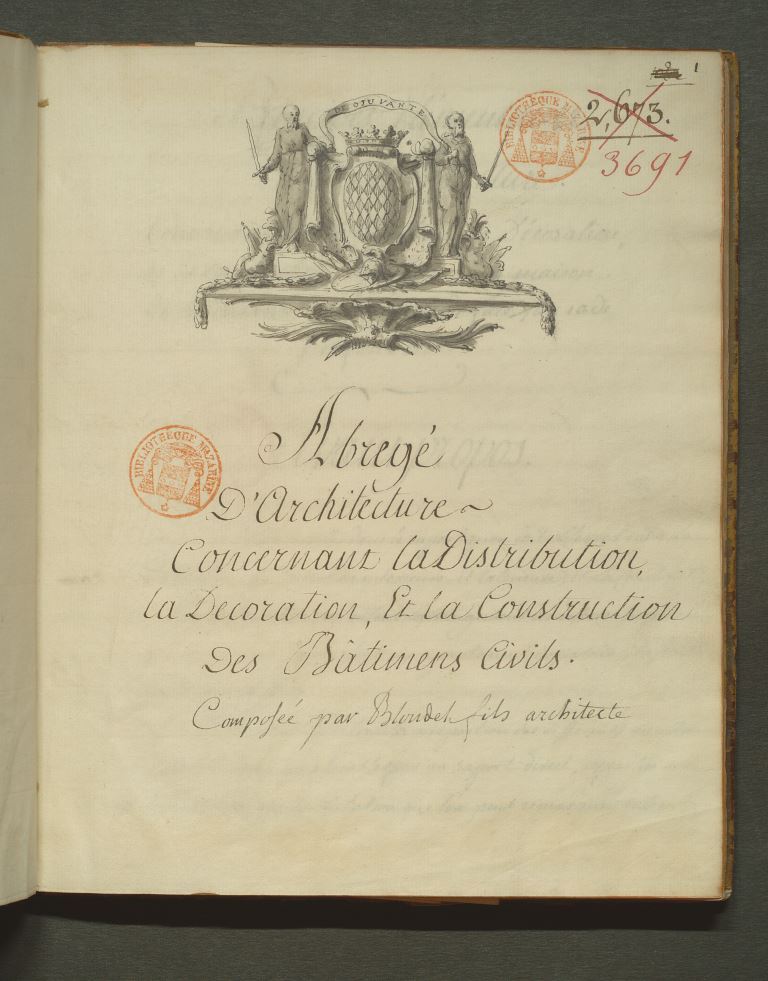 1
2,673.
3691
DEO JUVANTE
BIBLIOTHEQUE MAZARINE
Abregé
D'Architecture
Concernant la Distribution,
la Decoration, Et la Construction
Des Bâtimens Civils.
BIBLIOTHEQUE MAZARINE
Composée par Blondel fils architecte